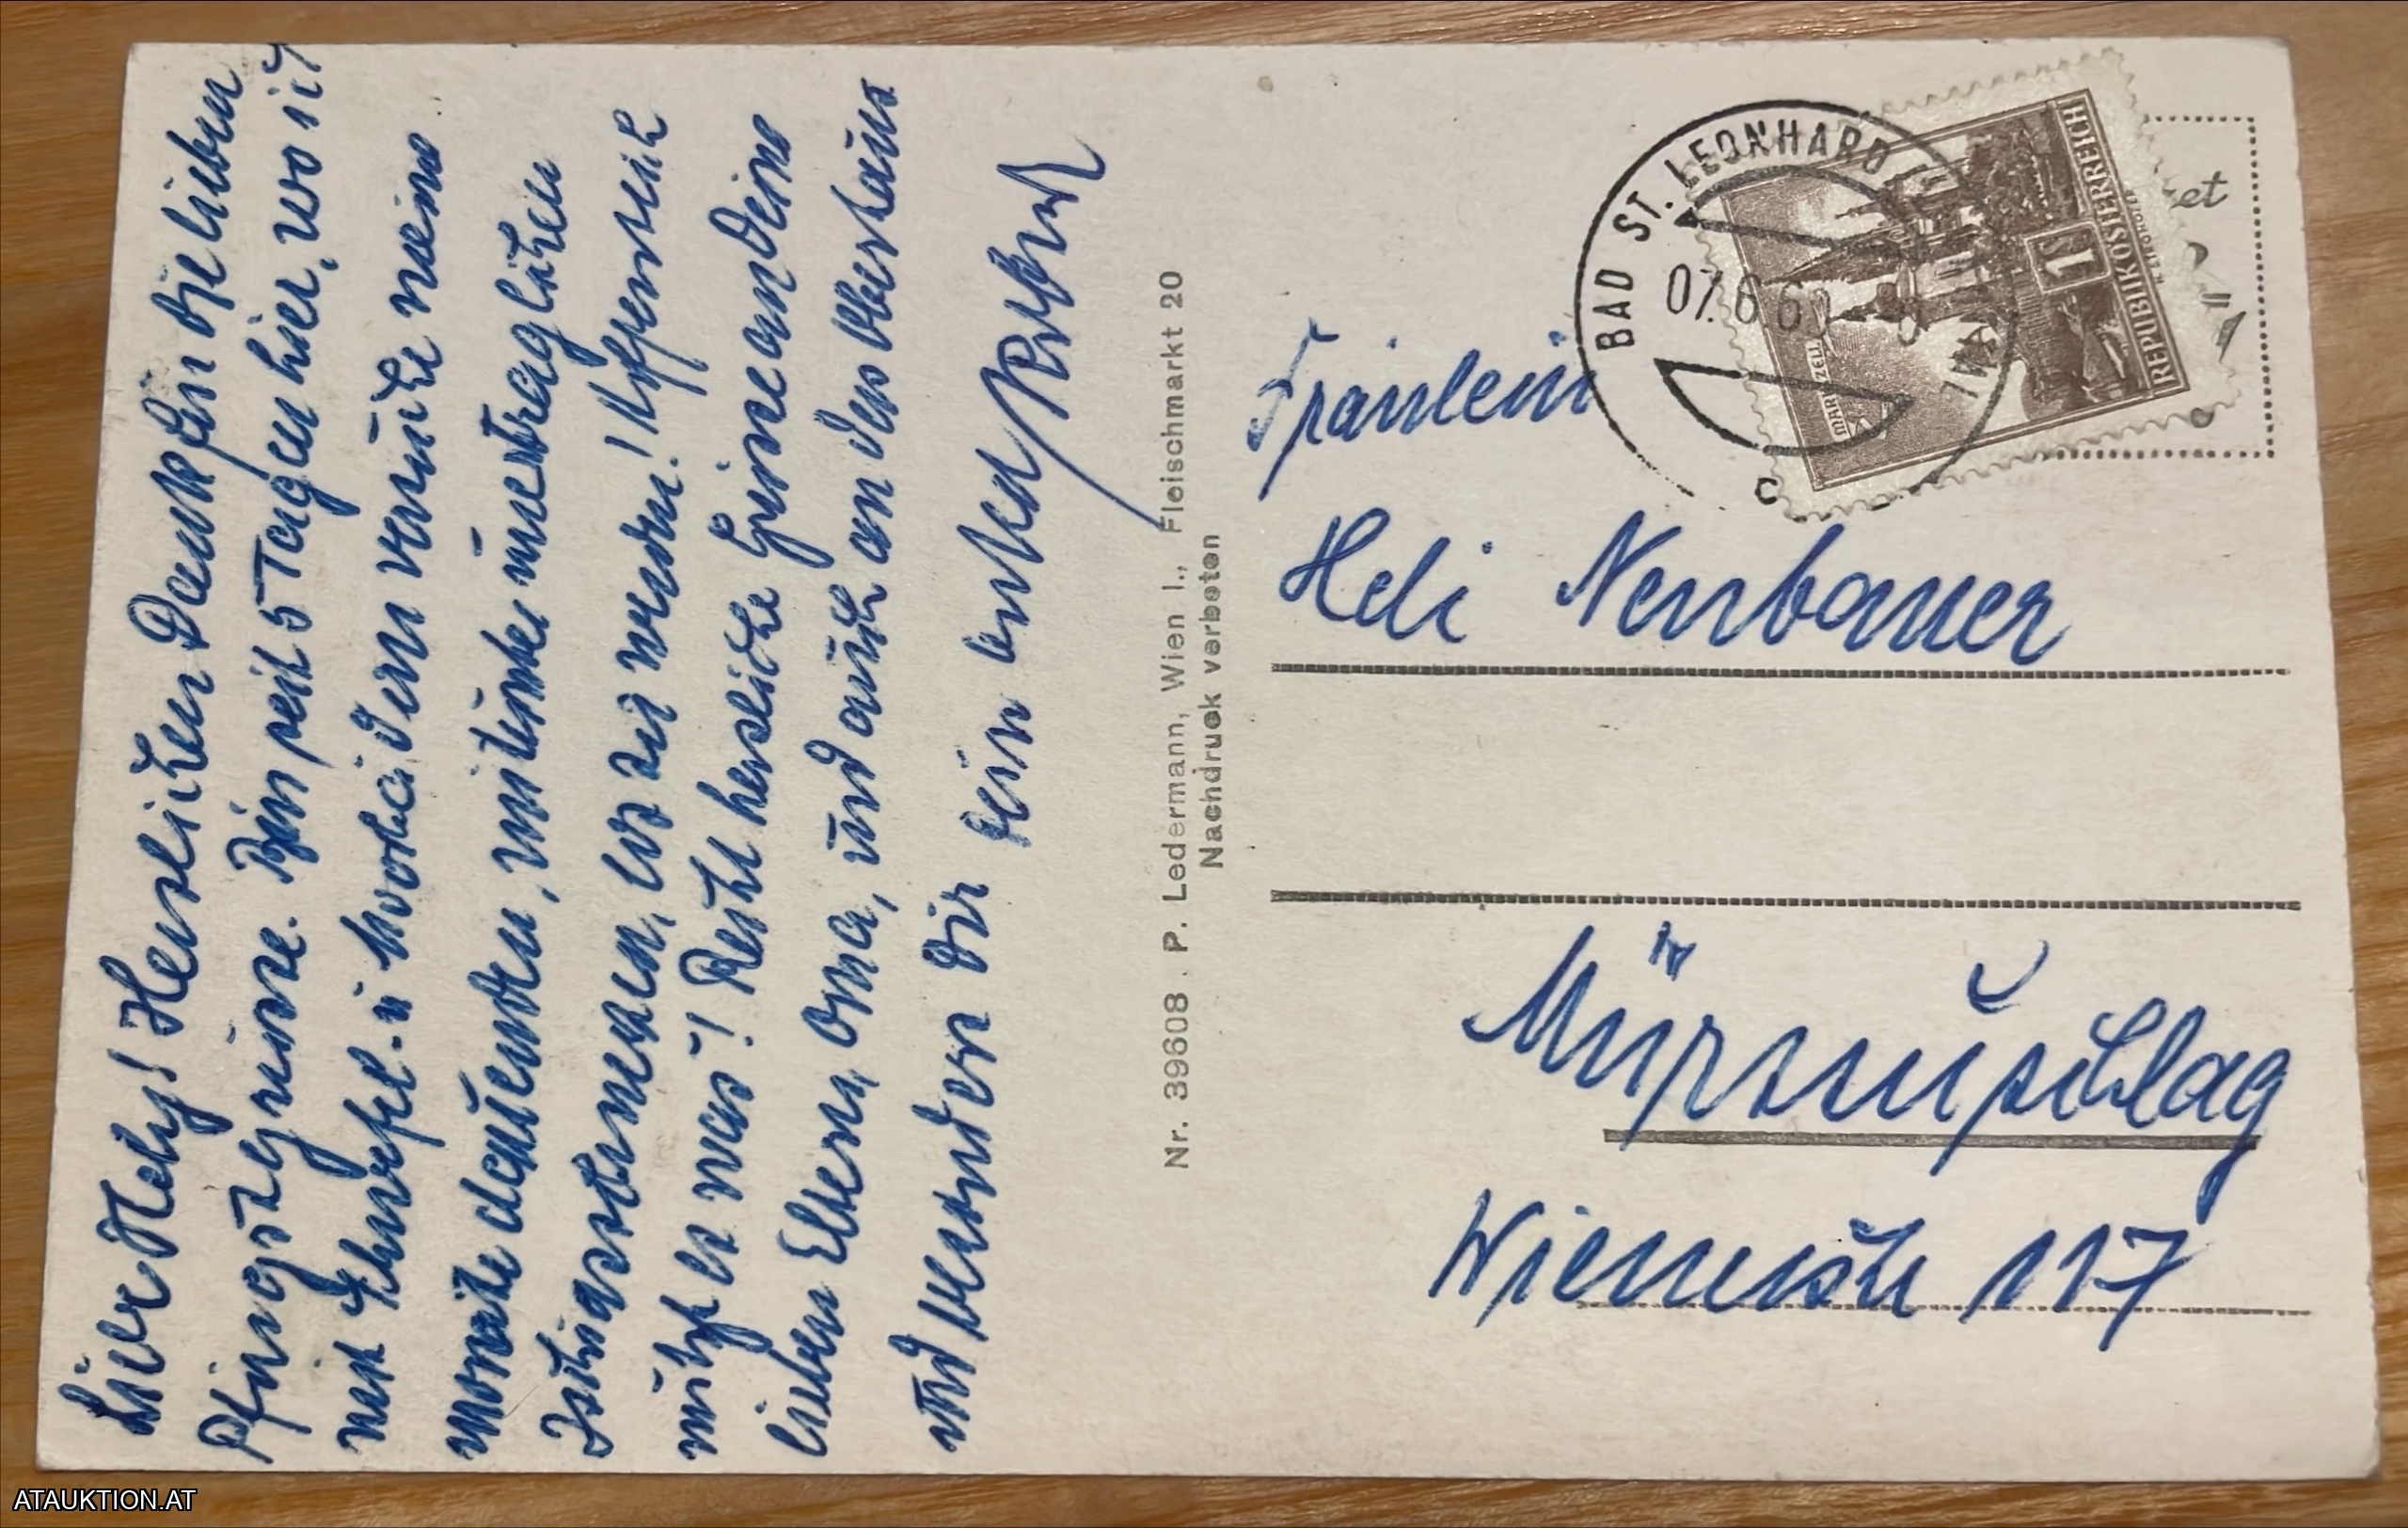 Liebe Hedy! Herzlichen Dank für die lieben
Pfingstgrüsse. Bin seit 5 Tagen hier, wo ich
mit Schwefel- u. Moorbädern versuche meine
Worte dauernden, mitunter unerträglichen
Ischiasschmerzen, los zu werden! Hoffentlich
nützt es was! Recht herzliche Grüsse an Deine
lieben Eltern, Oma, und auch an das
und besonders Dir dein
Nr. 39608 . P. Ledermann, Wien I., Fleischmarkt 20
Nachdruck verboten
BAD ST. LEONHARD
07.6.6
MARIAZELL
1 S
REPUBLIK ÖSTERREICH
Fräulein
Hedi Neubauer
Mürzzuschlag
Wienerstr 117
ATAUKTION.AT